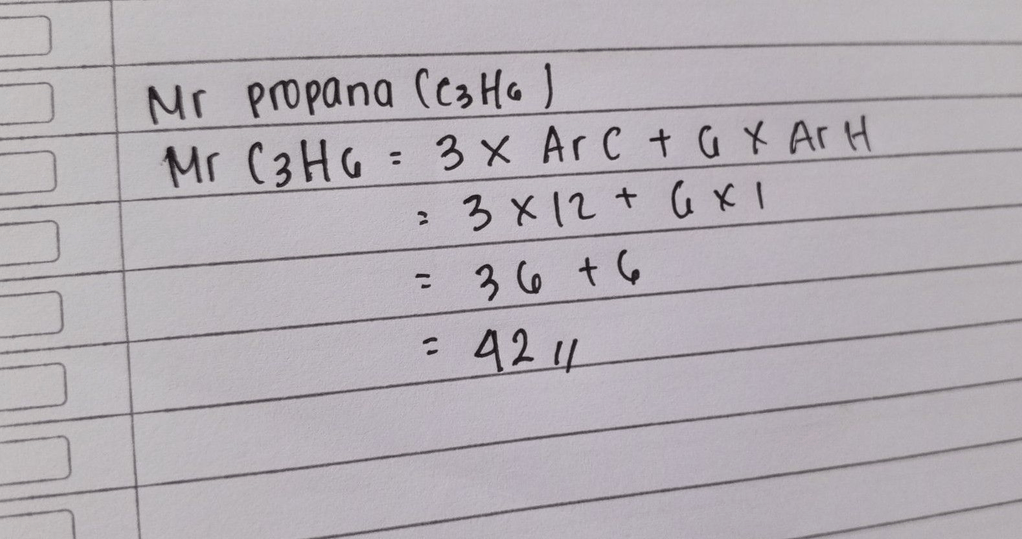 Mr propana (C3H6)
Mr C3H6 = 3 × Ar C + 6 × Ar H
= 3 × 12 + 6 × 1
= 36 + 6
= 42 //